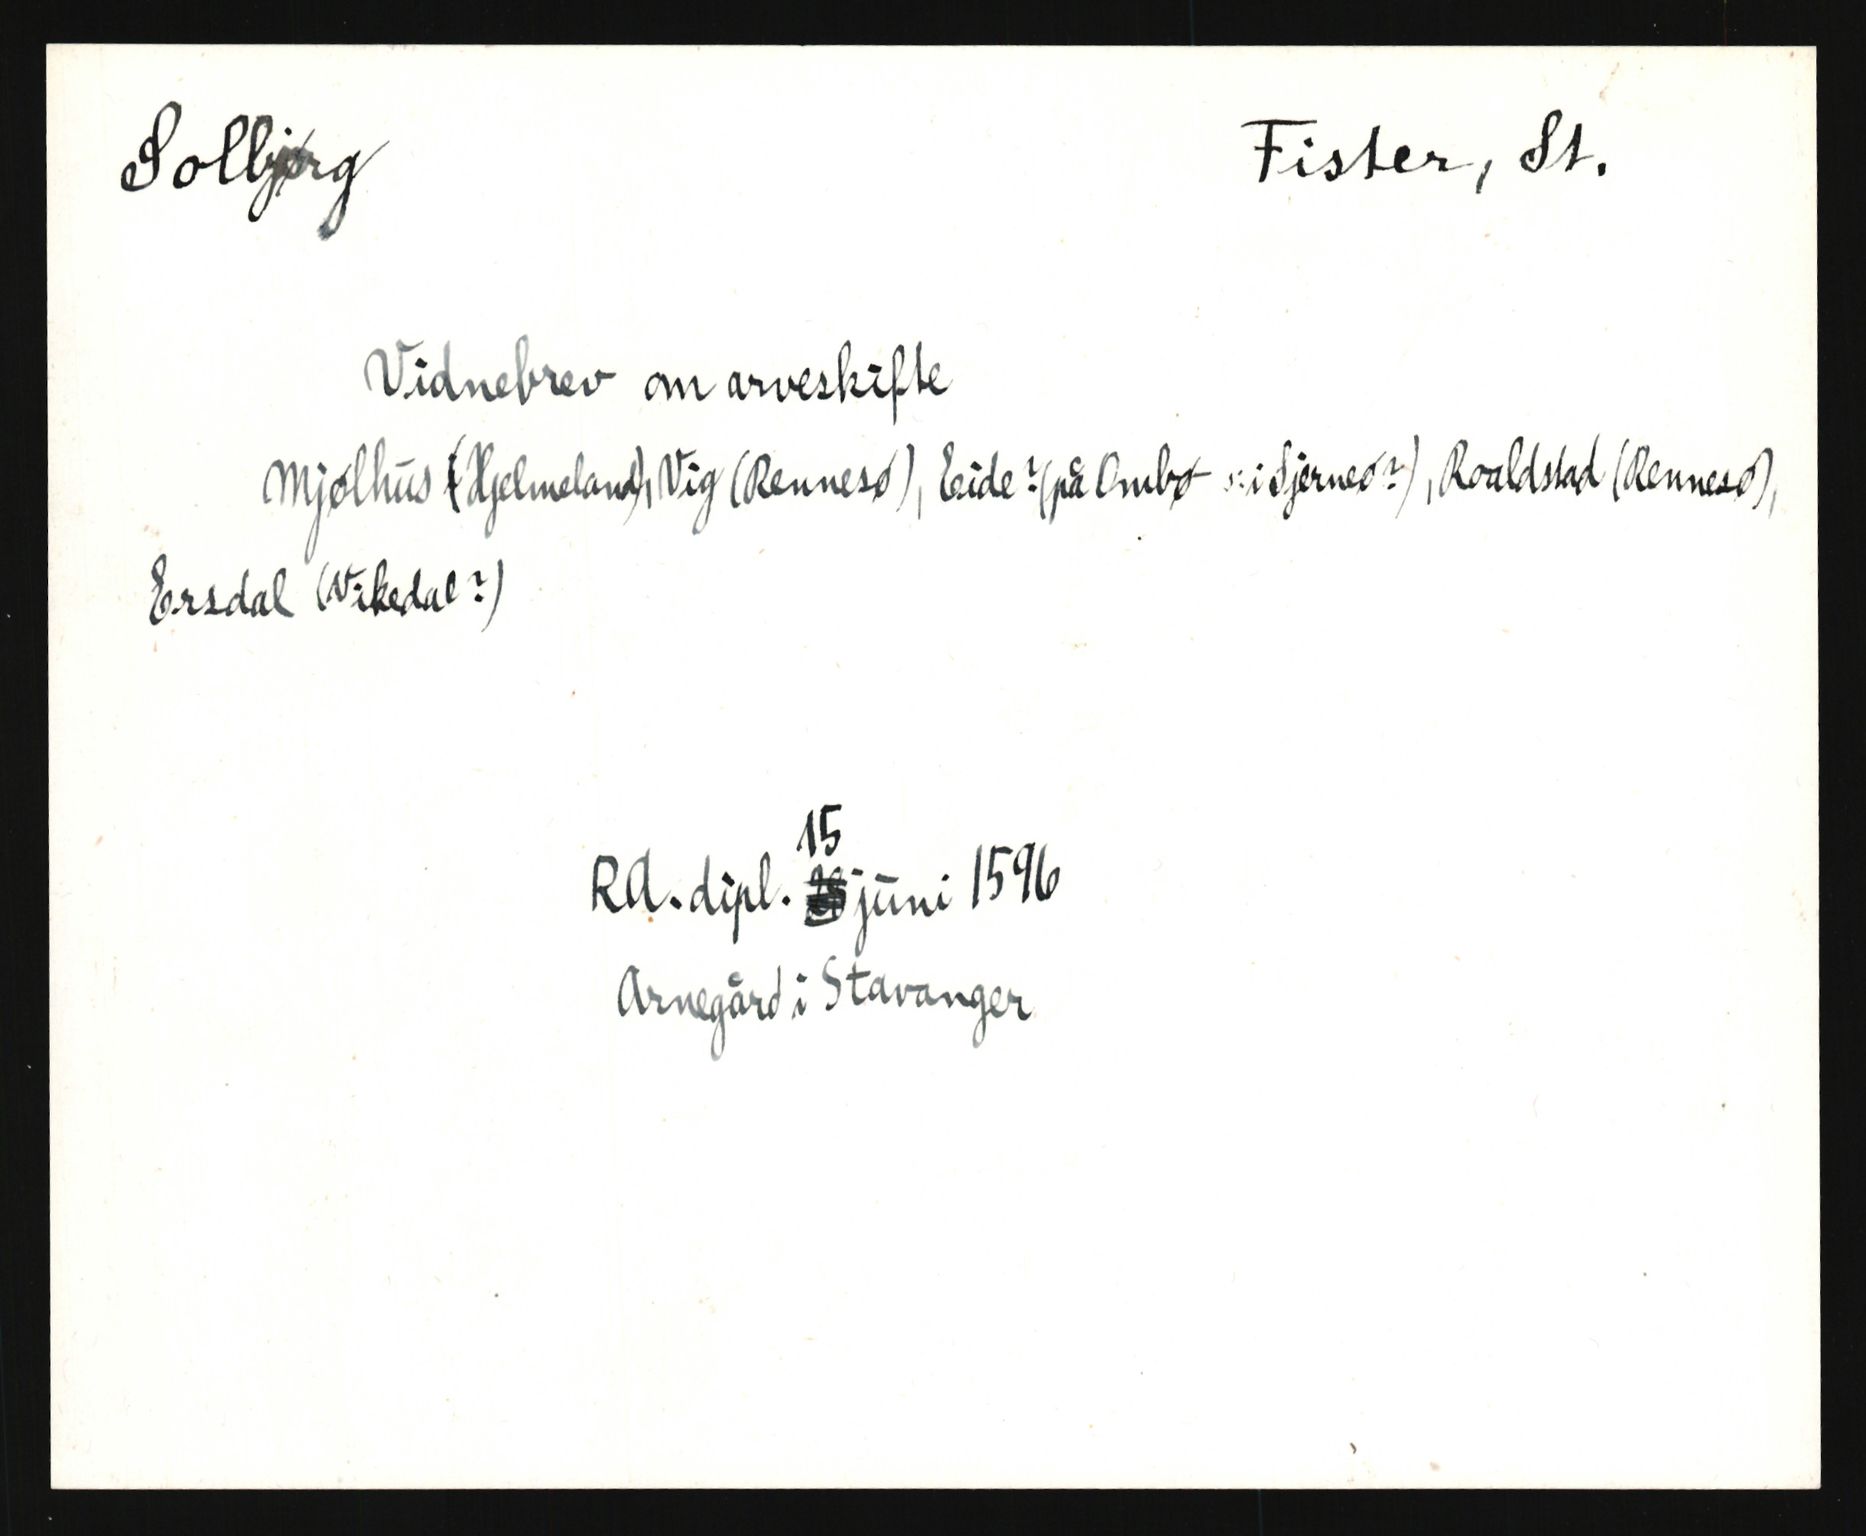 Solbjørg Fister, St.
Vidnebrev om arveskifte
Mjølhus (Hjelmeland), Vig (Rennesø), Eide? (på Ombø i Sjerneø?), Roaldstad (Rennesø),
Ersdal (Vikedal?)
15
RA. dipl. juni 1596
Arnegård i Stavanger